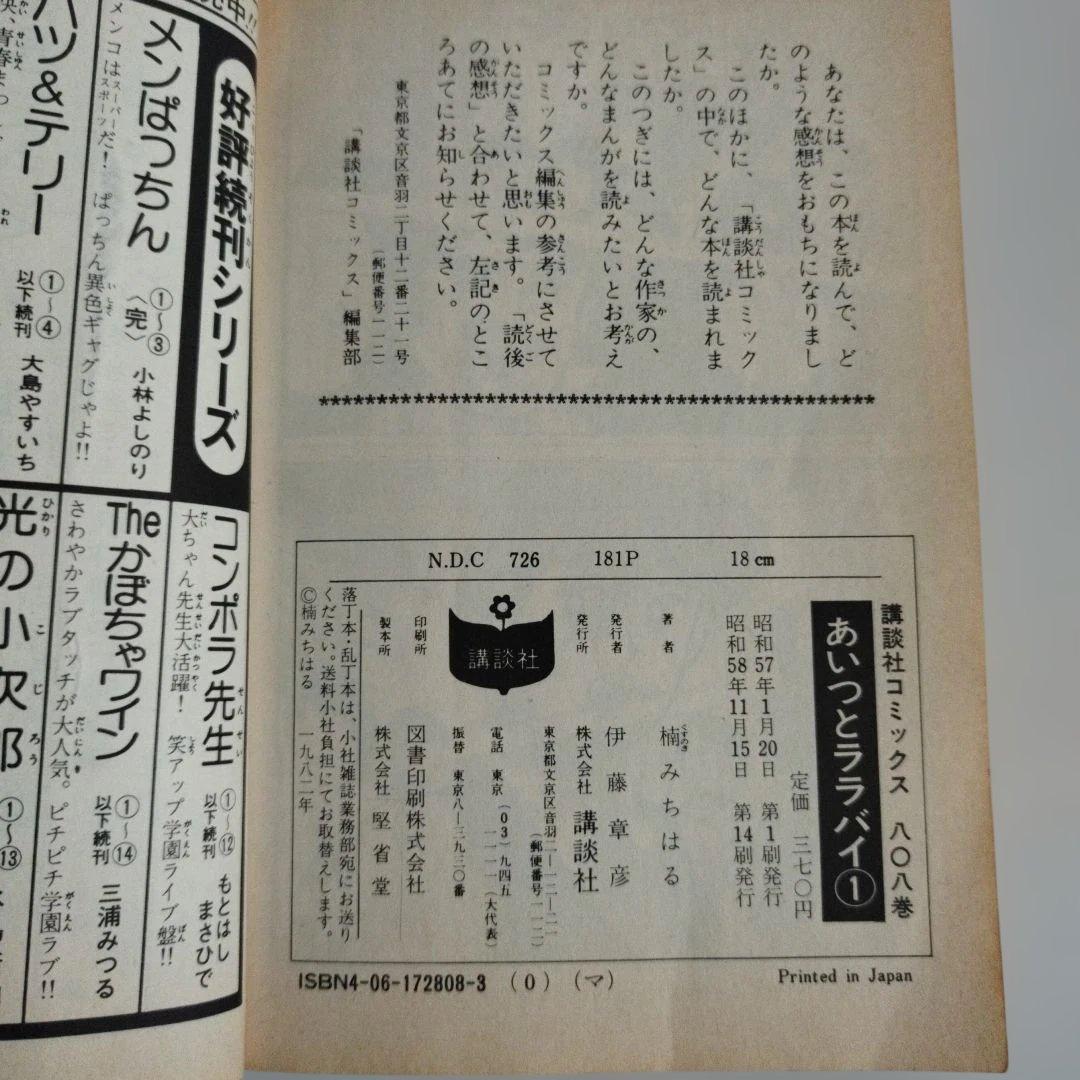 あなたは、この本を読んで、ど
のような感想をおもちになりまし
たか。
このほかに、「講談社コミック
ス」の中で、どんな本を読まれま
したか。
このつぎには、どんな作家の、
どんなまんがを読みたいとお考え
ですか。
コミックス編集の参考にさせて
いただきたいと思います。「読後
の感想」と合わせて、左記のとこ
ろあてにお知らせください。
東京都文京区音羽二丁目十二番二十一号
(郵便番号一一二)
「講談社コミックス」編集部
N.D.C 726 181P 18 cm
講談社コミックス 八〇八巻
あいつとララバイ①
定価 三七〇円
昭和57年1月20日 第1刷発行
昭和58年11月15日 第14刷発行
著者 楠みちはる
発行者 伊藤章彦
発行所 株式会社 講談社
東京都文京区音羽二―一二―二一
(郵便番号一一二)
電話 東京(03)九四五
一一一一(大代表)
振替 東京八―三九三〇番
講談社
印刷所 図書印刷株式会社
製本所 株式会社 堅省堂
落丁本・乱丁本は、小社雑誌業務部宛にお送り
ください。送料小社負担にてお取替えします。
©楠みちはる 一九八二年
ISBN4-06-172808-3 (0) (マ)
Printed in Japan
好評続刊シリーズ
メンぱっちん
①〜③
〈完〉
小林よしのり
メンコはスーパースポーツだ! ぱっちん異色ギャグじゃよ!!
ハツ&テリー
①〜④
以下続刊
大島やすいち
コンポラ先生
①〜⑫
以下続刊
もとはし
まさひで
大ちゃん先生大活躍! 笑アップ学園ライブ盤!!
Theかぼちゃワイン
①〜⑭
以下続刊
三浦みつる
さわやかラブタッチが大人気。ピチピチ学園ラブ!!
光の小次郎
①〜⑬